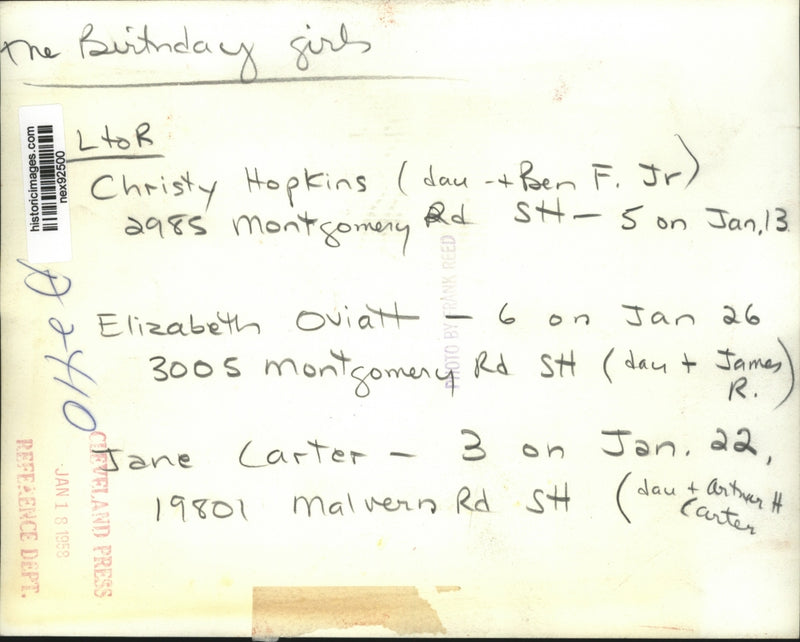 The Birthday girls
L to R
Christy Hopkins (dau + Ben F. Jr)
2985 Montgomery Rd SH - 5 on Jan. 13
Elizabeth Oviatt - 6 on Jan 26
3005 Montgomery Rd SH (dau + James R.)
Jane Carter - 3 on Jan. 22,
19801 Malvern Rd SH (dau + Arthur H Carter
historicimages.com
nex92500
PHOTO BY FRANK REED
CLEVELAND PRESS
JAN 18 1958
REFERENCE DEPT.